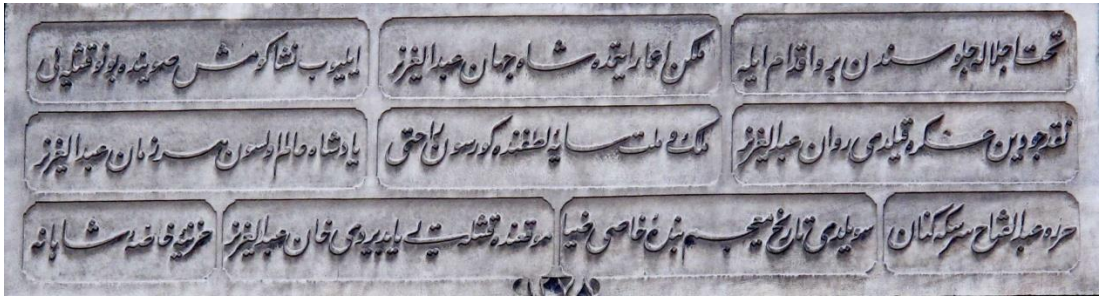 تخت اجلاله جلوسندن برو اقدام ایله
ملكن اعمار ایتمده شاه جهان عبدالعزیز
ایلیوب انشا كومش صوینده بو نو قشله یی
نقد جودین عسكره قیلدی روان عبدالعزیز
ملك و ملت سایۀ لطفنده كورسون راحتی
پادشاه عالم اولسون هر زمان عبدالعزیز
حرره عبدالفتاح سرسكه كنان
سویلدی تاریخ معجم بندۀ خاصی ضیا
موقعنده قشله یی یاپدیردی خان عبدالعزیز
خزینۀ خاصه شاهانه
۱۲۷۸